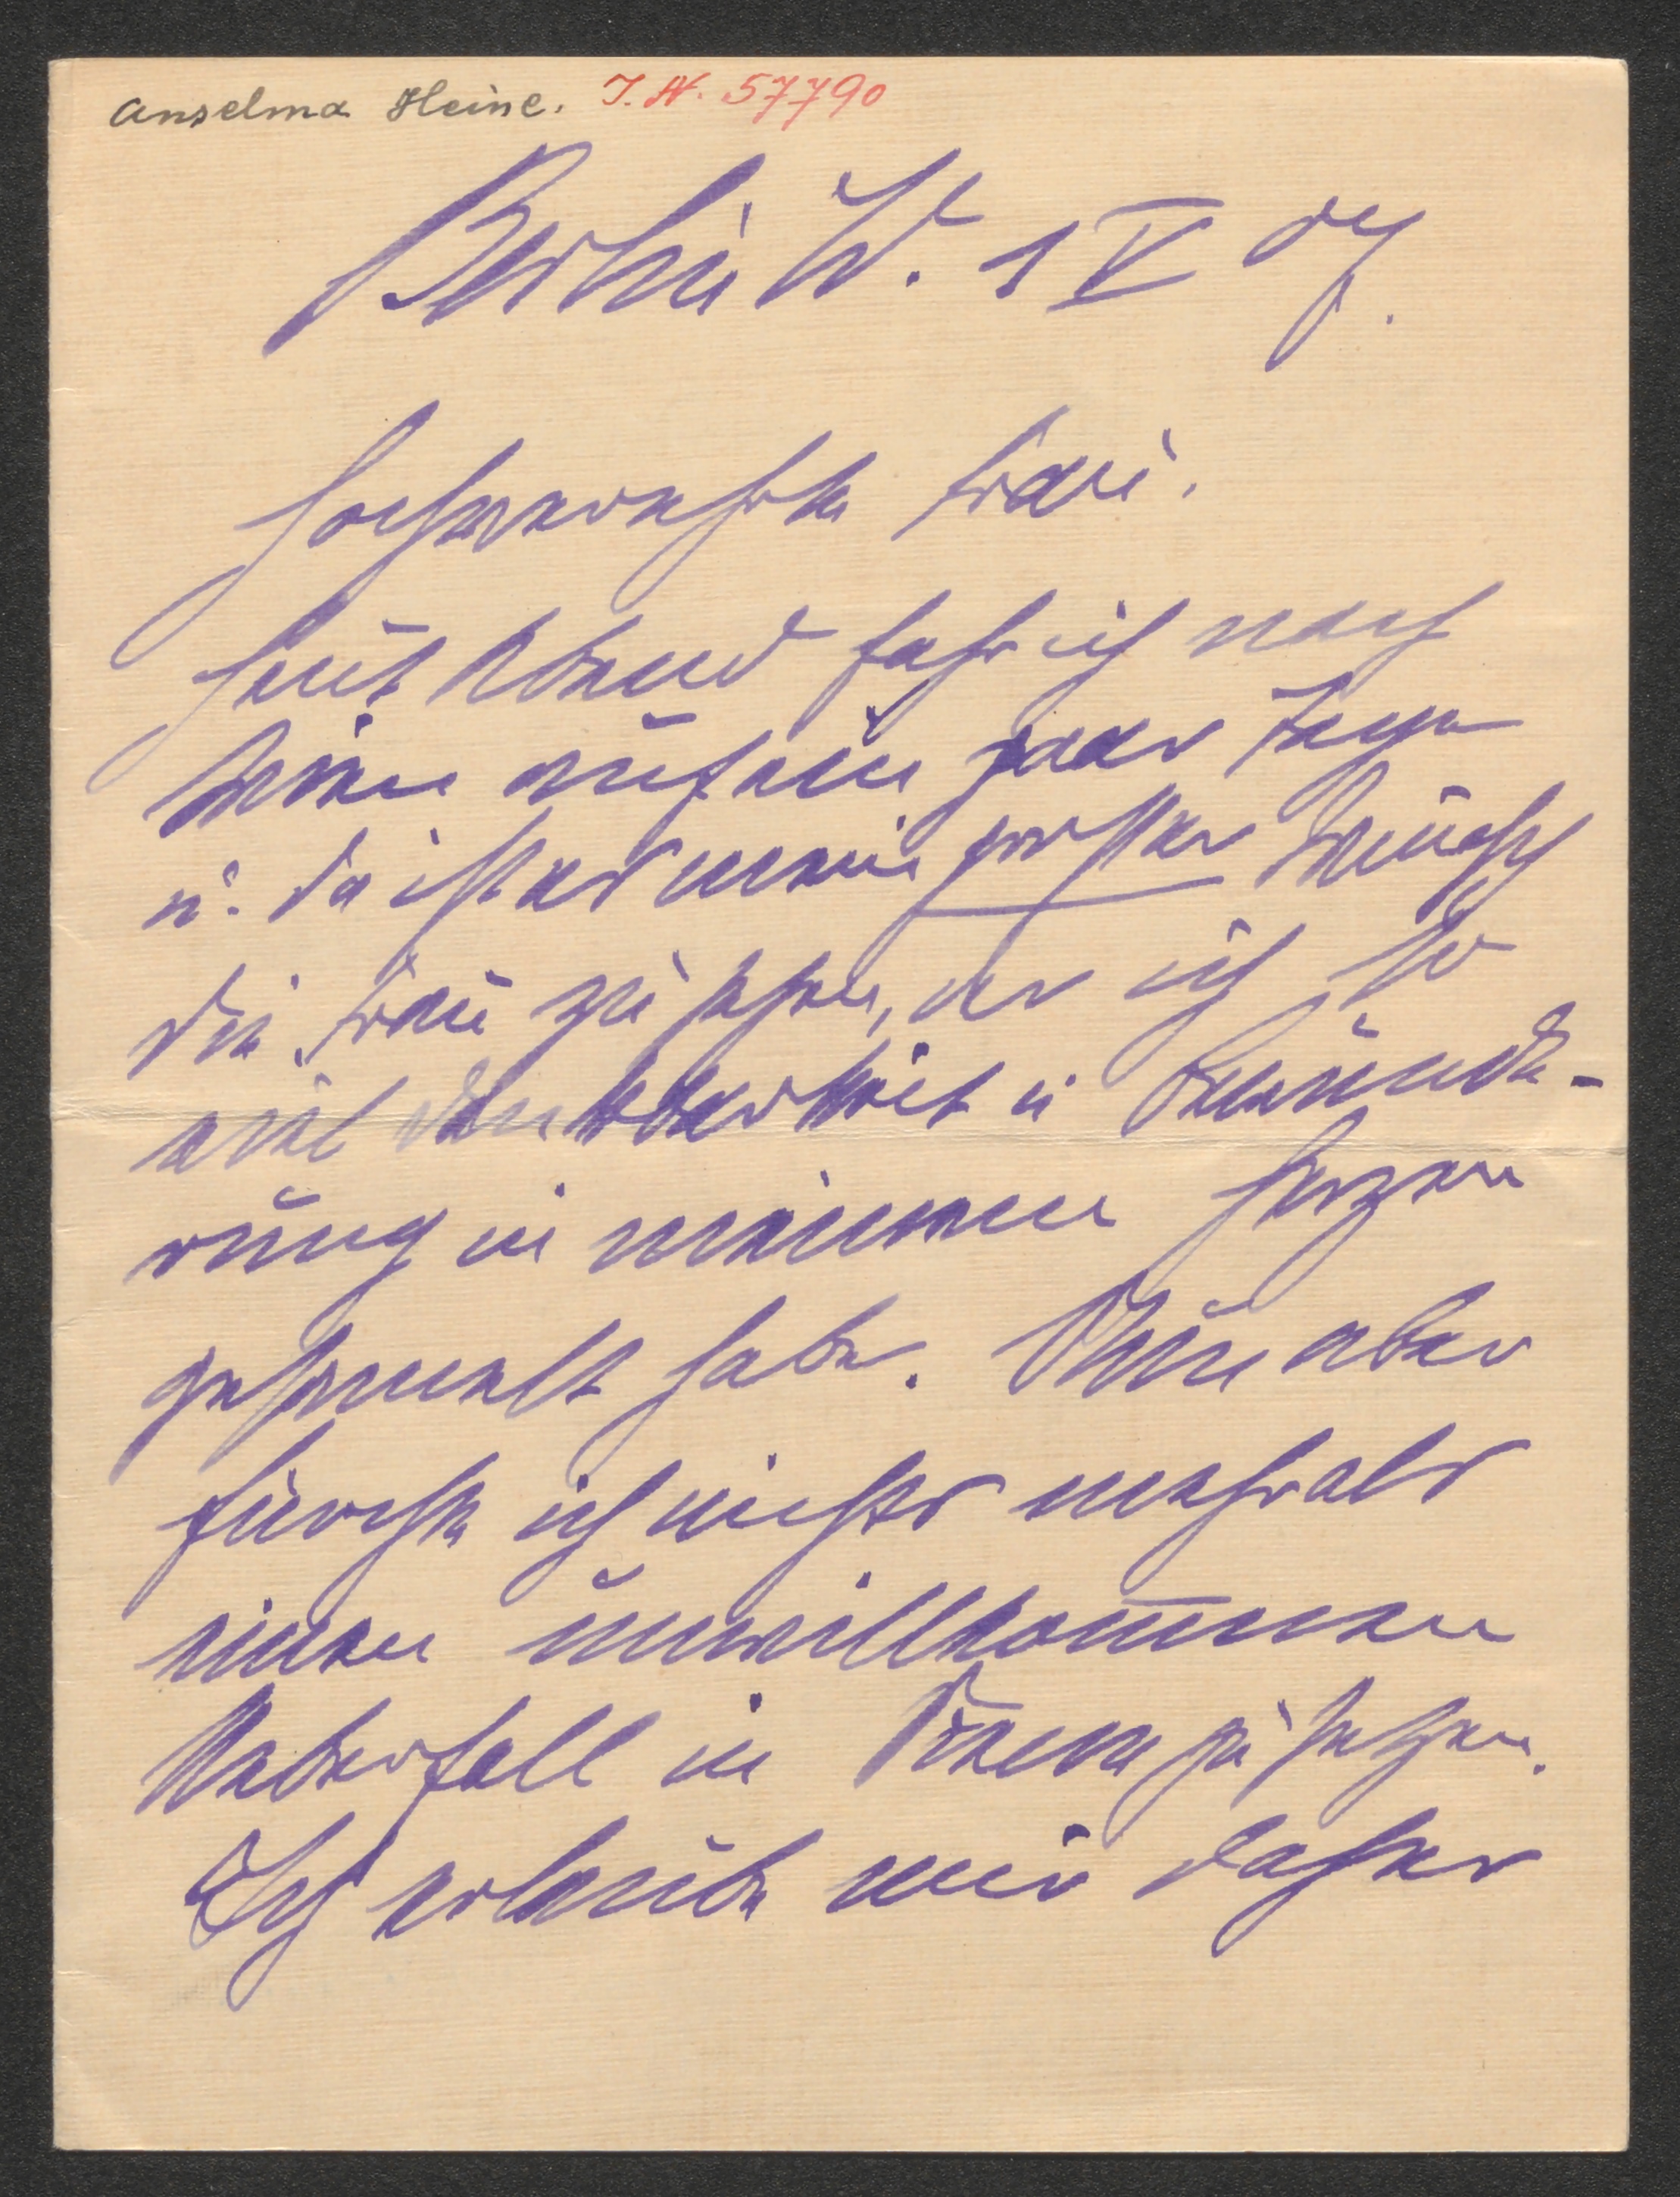 Anselma Heine. I. N. 57790
Berlin W. 1 V 07.
Hochverehrte Frau.
Heut Abend fahr ich nach
Wien auf ein paar Tage
u. da ist es mein großer Wunsch
die Frau zu sehen, der ich so
viel Dankbarkeit u Bewunde-
rung in meinem Herzen
gesammelt habe. Nun aber
fürchte ich nichts mehr als
einen unwillkom̅menen
Ueberfall in Scene zu setzen.
Ich erlaube mir daher